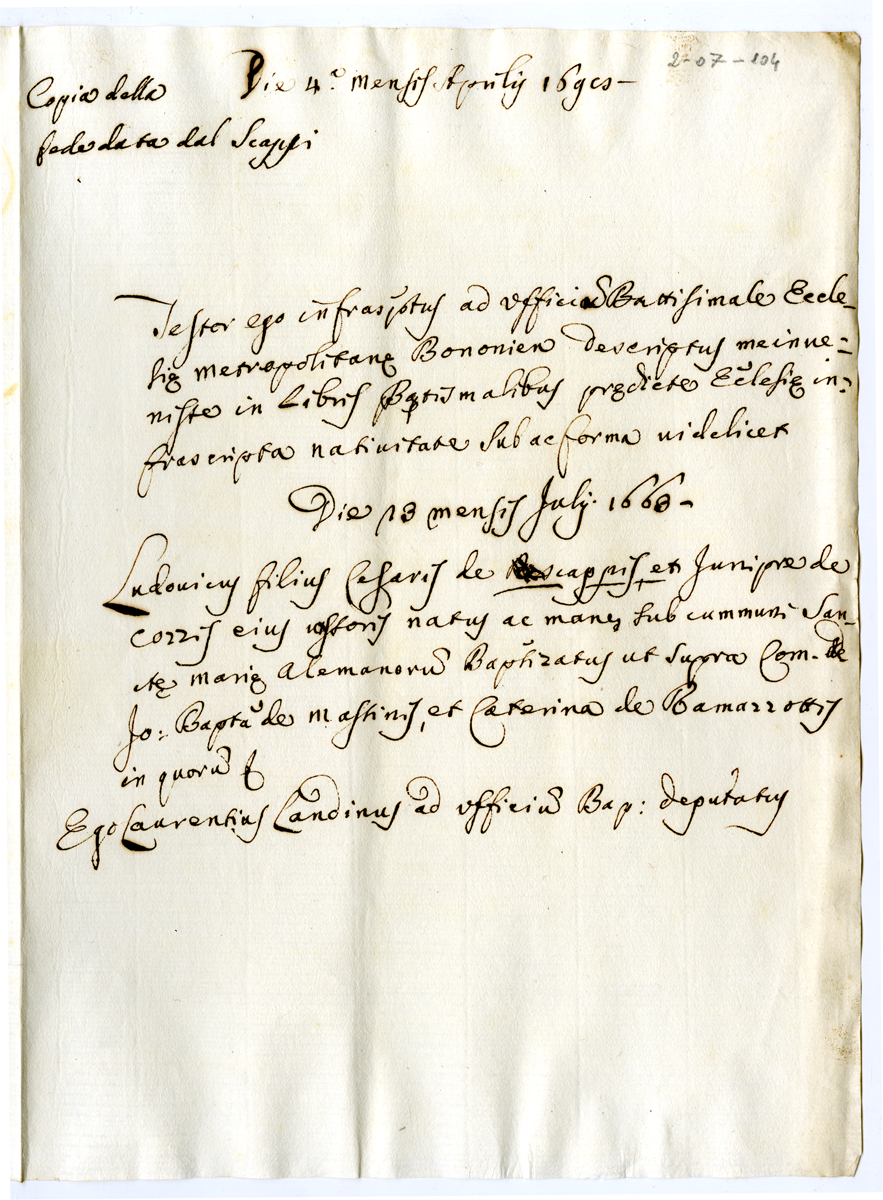 2-07-104
Copia della
fede data dal Scappi
Die 4.º mensis Aprilij
Testor ego infrasc̃ptus ad Officiũ Battisimale Eccle-
się metropolitanę Bononien descriptus me inue=
niste in Libris Baptismalibus prędicte Ecc̃lesię in=
frascripta natiuitate sub ac forma uidelicet
Die 18 mensis July. 1668-
Ludouicus filius Cesaris de Scappis, et Junipre de
Cozzis eius uxtoris natus ac manes sub cummuni San-
ctę marię Alemanorũ Baptizatus ut supra Com. de
Jo: Bapta de Mastinis, et Caterina de Ramazzottis
in quorũ f
Ego Laurentius Landinus ad officiũ Bap: deputatus